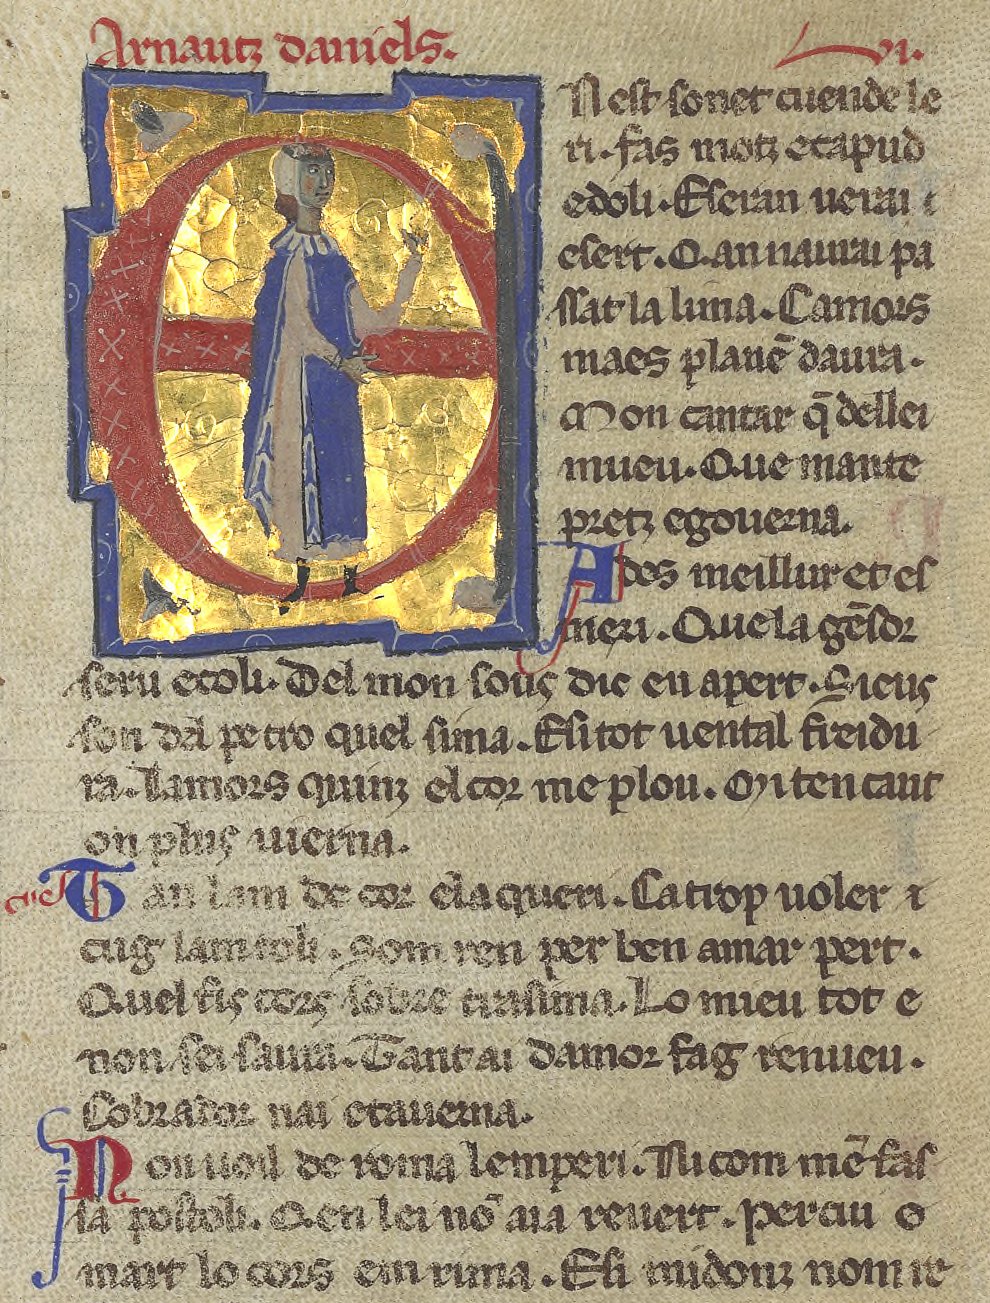 Arnautz daniels. .vi.
En est sonet cuende le
ri. fas motz ecapud
edoli. Eseran uerai
esert. Q.an naurai pa
ssat la lima. Camors
maes planē daura.
Mon cantar q̄ dellei
mueu. Que mante
pretz egouerna.
Ades meillur et es
meri. Quela gēsdr
seru ecoli. Del mon souꝯ dic en apert. Sieuꝯ
son dal petro quel sima. Esitot uental freidu
ra. Lamors quinz el cor me plou. Mi ten caut
on pluꝯ uierna.
Tan lam de cor ela queri. Catrop uoler
cug lam toli. Som ren per ben amar pert.
Quel siꝯ corꝯ sobre trasima. Lo mieu tot e
non sei saura. Tant ai damor fag renueu.
Cobrador nai etauerna.
Non uoil de roma lemperi. Ni com mē fas
la postoli. Q.en lei nō aia reuert. per cui
mart lo cors em rima. Esi midonz nom re